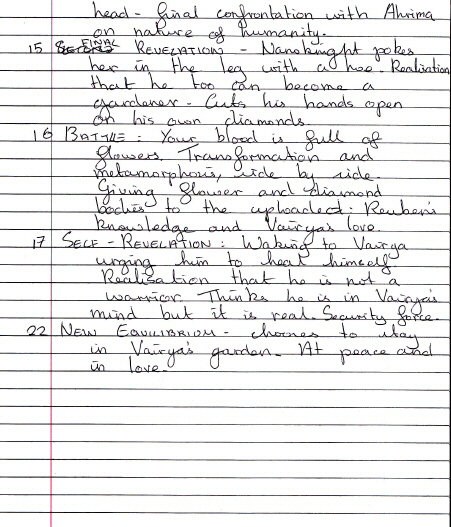 head - final confrontation with Ahrima
on nature of humanity.
15 FINAL REVELATION - Nanoknight pokes
her in the leg with a hoe. Realisation
that he too can become a
gardener - Cuts his hands open
on his own diamonds.
16 BATTLE: Your blood is full of
flowers. Transformation and
metamorphosis, side by side.
Giving flower and diamond
bodies to the uploaded: Reuben's
knowledge and Vairya's love.
17 SELF-REVELATION: Waking to Vairya
urging him to heal himself.
Realisation that he is not a
warrior. Thinks he is in Vairya's
mind but it is real. Security force.
22 NEW EQUILIBRIUM - chooses to stay
in Vairya's garden. At peace and
in love.